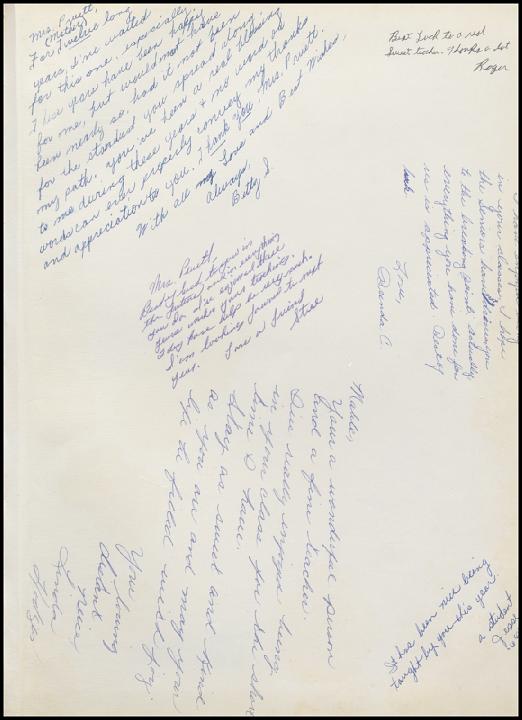 Mrs. Pruett,
(Mitzie)
For twelve long
years, I've waited
for this one, especially.
These years have been happy
for me, but would not have
been nearly so, had it not been
for the stardust you spread along
my path. You've been a real blessing
to me during these years & no word or
words can ever properly convey my thanks
and appreciation to you. I thank you Mrs. Pruett.
With all my love and Best Wishes,
Always,
Betty J.
Best Luck to a real
Sweet teacher. Thanks a lot
Roger
in your classes. I hope
the Seniors haven't driven you
to the breaking point. Actually
everything you have done for
us is appreciated. Best of
luck.
Love,
Brenda C.
Mrs. Pruett,
Best of luck to you in
the future, and in everything
you do. I've enjoyed these
years under your teaching.
They have helped me very much.
I'm looking forward to next
year.
Love a friend
Stae
You're a wonderful person
and a fine teacher.
I've really enjoyed being
in your class for the short
time I have.
Stay as sweet and kind
as you are and may your
life be filled with joy.
Your loving
student
Linda
It has been nice being
taught by you this year.
a student
Jesse